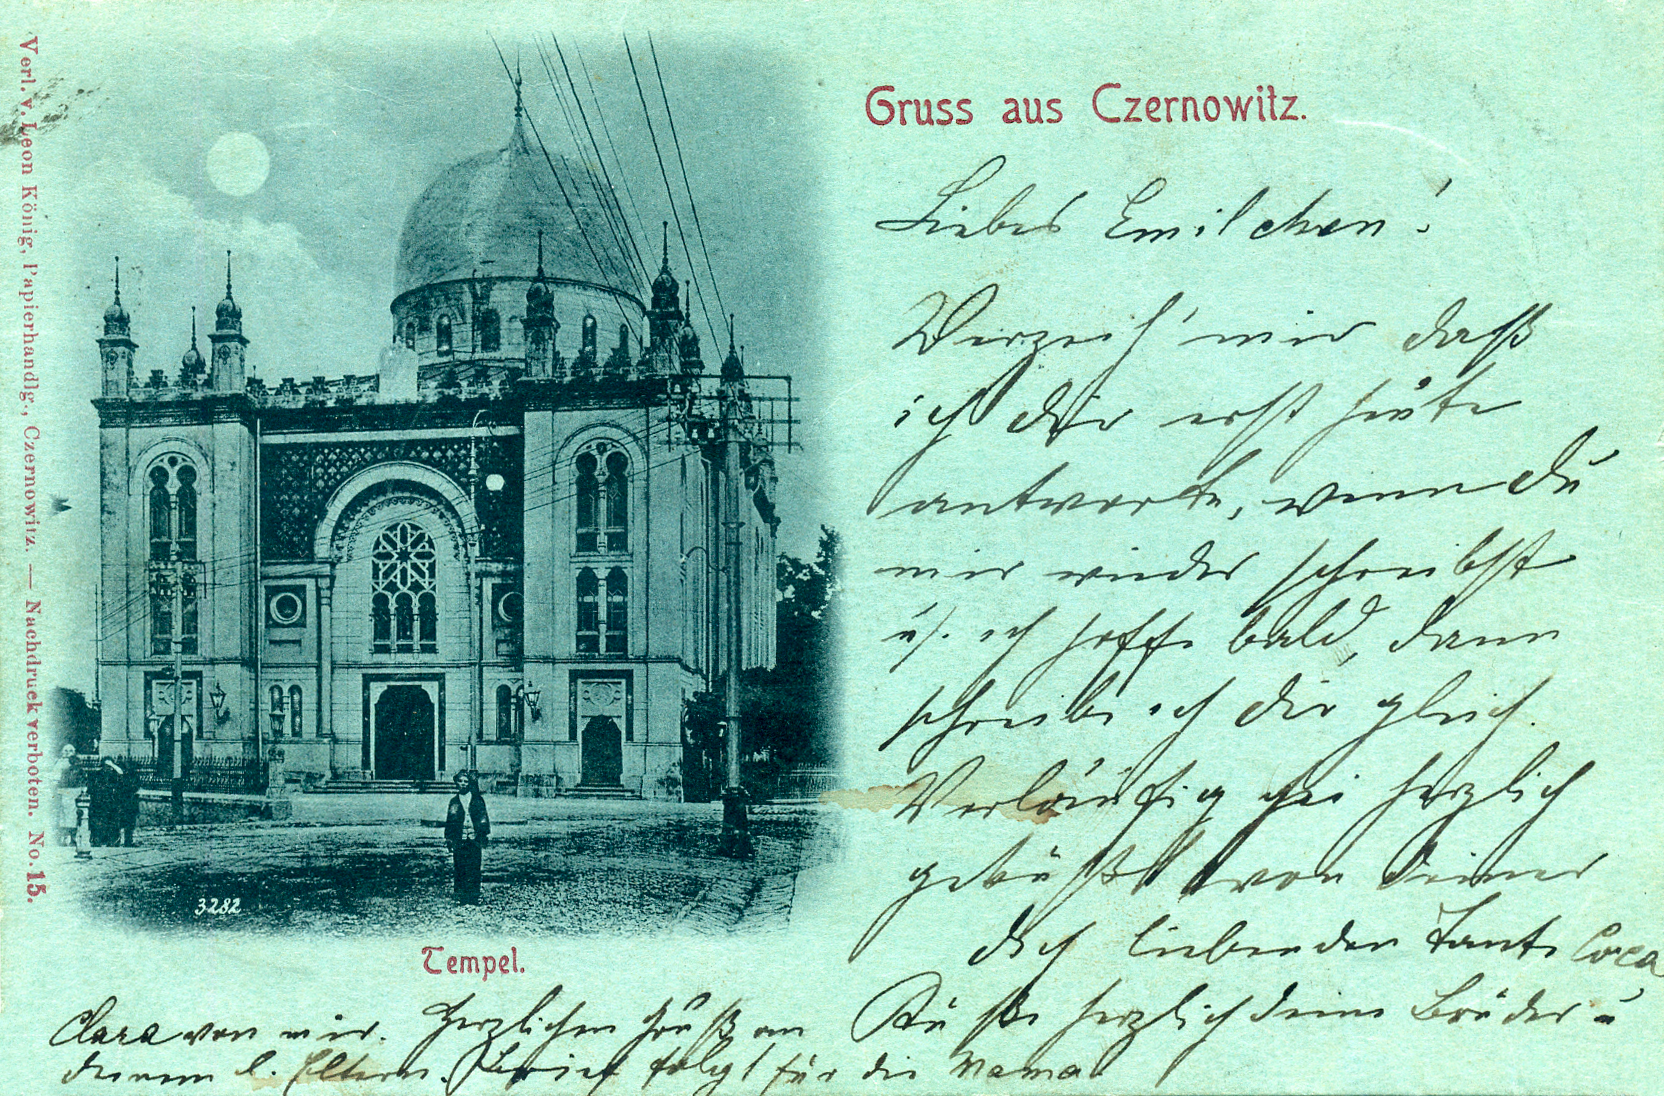 Verl. v. Leon König, Papierhandlg., Czernowitz. — Nachdruck verboten. No. 15.
Gruss aus Czernowitz.
Liebes Emilchen!
Verzeih' mir daß
ich dir erst heute
antworte, wenn du
mir wieder schreibst
u. ich hoffe bald, dann
schreibe ich dir gleich.
Vorläufig sei herzlich
geküßt von deiner
dich liebenden Tante Cora
Küße herzlich deine Brüder u
Clara von mir. Herzlichen Gruß an
deinen l. Eltern. Brief folgt für die Mama
3282
Tempel.